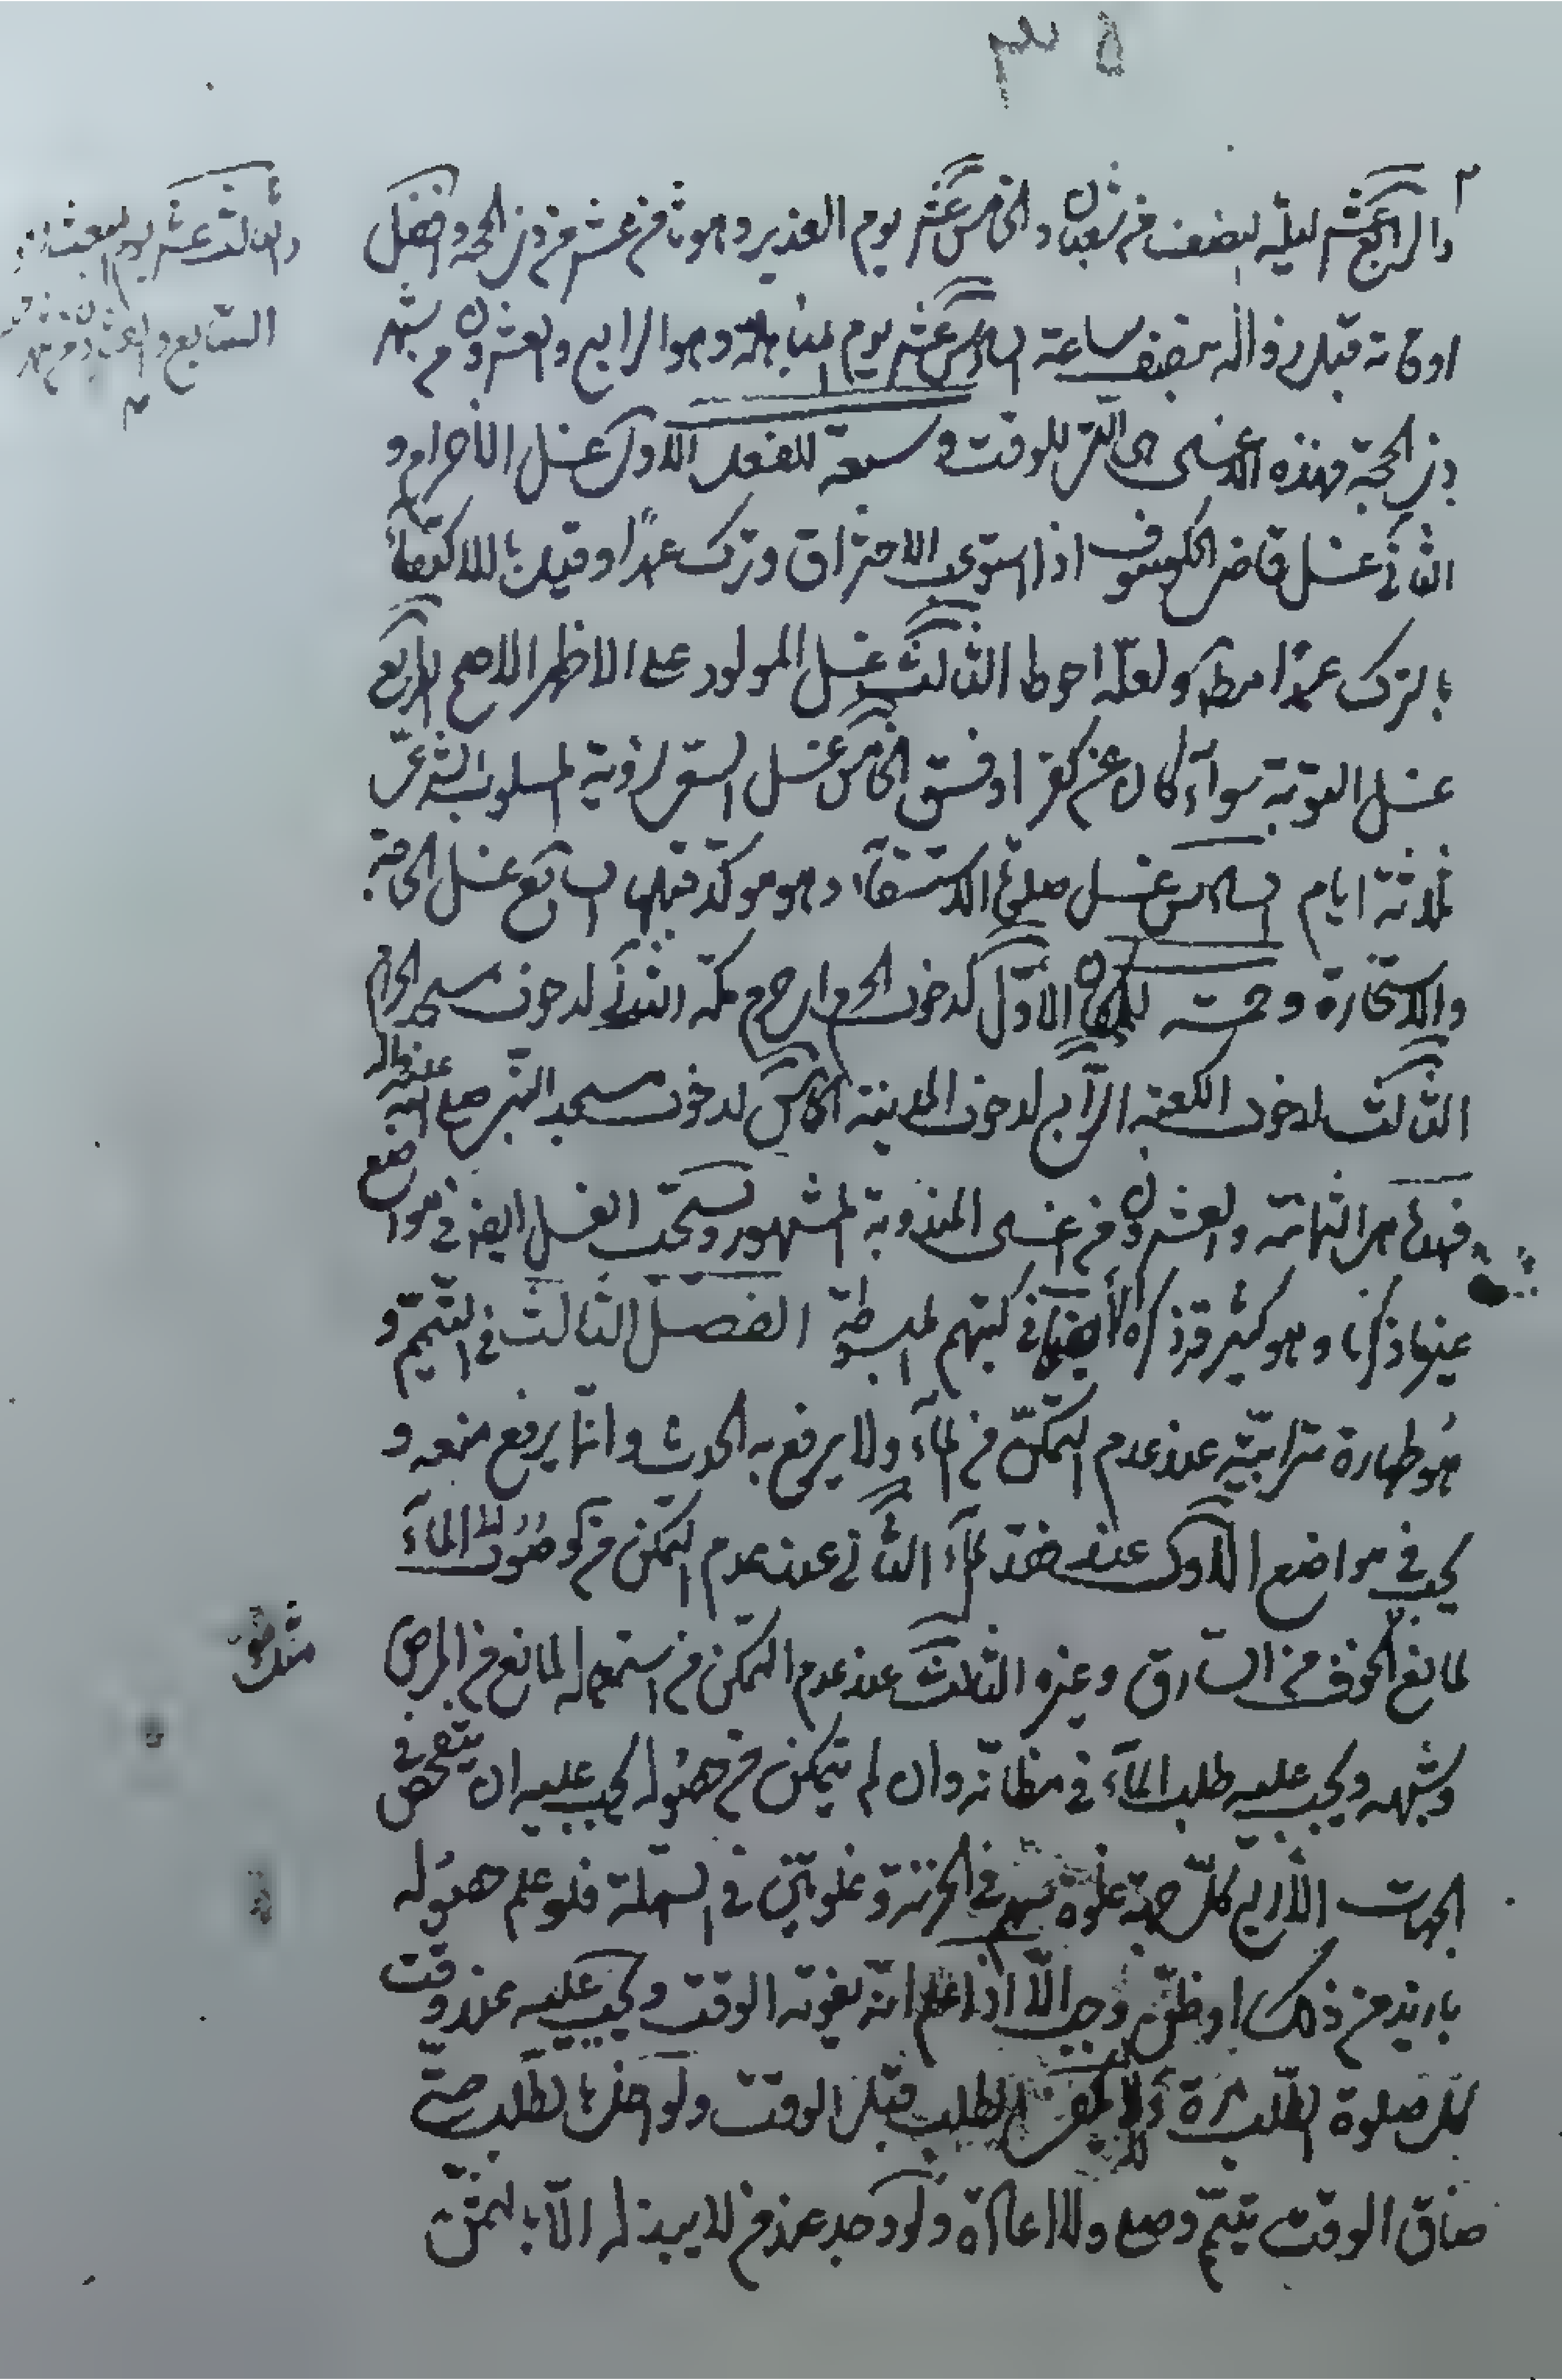 والرابع عشر ليلة النصف من شعبان والخامس عشر يوم الغدير وهو ثامن عشر من ذي الحجة وافضل
اوقاته قبل زواله بنصف ساعة السادس عشر يوم المباهلة وهو الرابع والعشرون من شهر
ذي الحجة فهذه الاغسال التي للوقت وسبعة للفعل الاول غسل الأحرام و
الثاني غسل قاضي الكسوف اذا استوعب الاحتراق وترك عمدًا وقيل بالاكتفاء
بالترك عمدًا مطلقا ولعله احوط الثالث غسل المولود على الاظهر الاصح الرابع
غسل التوبة سوآء كان عن كفر او فسق الخامس غسل السعي لرؤية المصلوب الشرعي
ثلاثة ايام السادس غسل صلوة الاستسقآء وهو موكد قبلها السابع غسل الحاجة
والاستخارة وخمسة للمكان الاوّل لدخول الحرم اي حرم مكة الثاني لدخول مسجد الحرام
الثالث لدخول الكعبة الرابع لدخول المدينة الخامس لدخول مسجد النبي صلى الله عليه واله
فهذه هي الثمانية والعشرون من اغسال المندوبة المشهور ويستحب الغسل ايضا في مواضع
غيرها ذكرنا وهو كثير قد ذكره الأصحاب في كتبهم المبسوطة الفصل الثالث في التيمّم و
هو طهارة ترابيّة عند عدم التمكّن من المآء ولا يرفع به الحدث وانّما يرفع منعه و
يجب في مواضع الاول عند فقد المآء الثاني عند عدم التمكن من الوصول الى المآء
لمانع الخوف من السارق وغيره الثالث عند عدم التمكن من استعماله لمانع من المرض
وشبهه ويجب عليه طلب المآء في مظانّه وان لم يتمكن من حصوله يجب عليه ان يتفحص في
الجهات الأربع كلّ جهة غلوة سهم في الحزنة وغلوتين في السهلة فلو علم حصوله
بازيد من ذلك او ظنّ وجب الّا اذا علم انه يفوته الوقت ويجب عليه عند وقت
كل صلوة الطلب مرة ولا يكفي الطلب قبل الوقت ولو اخل بالطلب حتى
ضاق الوقت يتيمّم وصلى ولا اعادة ولو وجد عند من لا يبذله الّا بالثمن
والثالث عشر يوم المبعث
السابع والعشرون من شهر